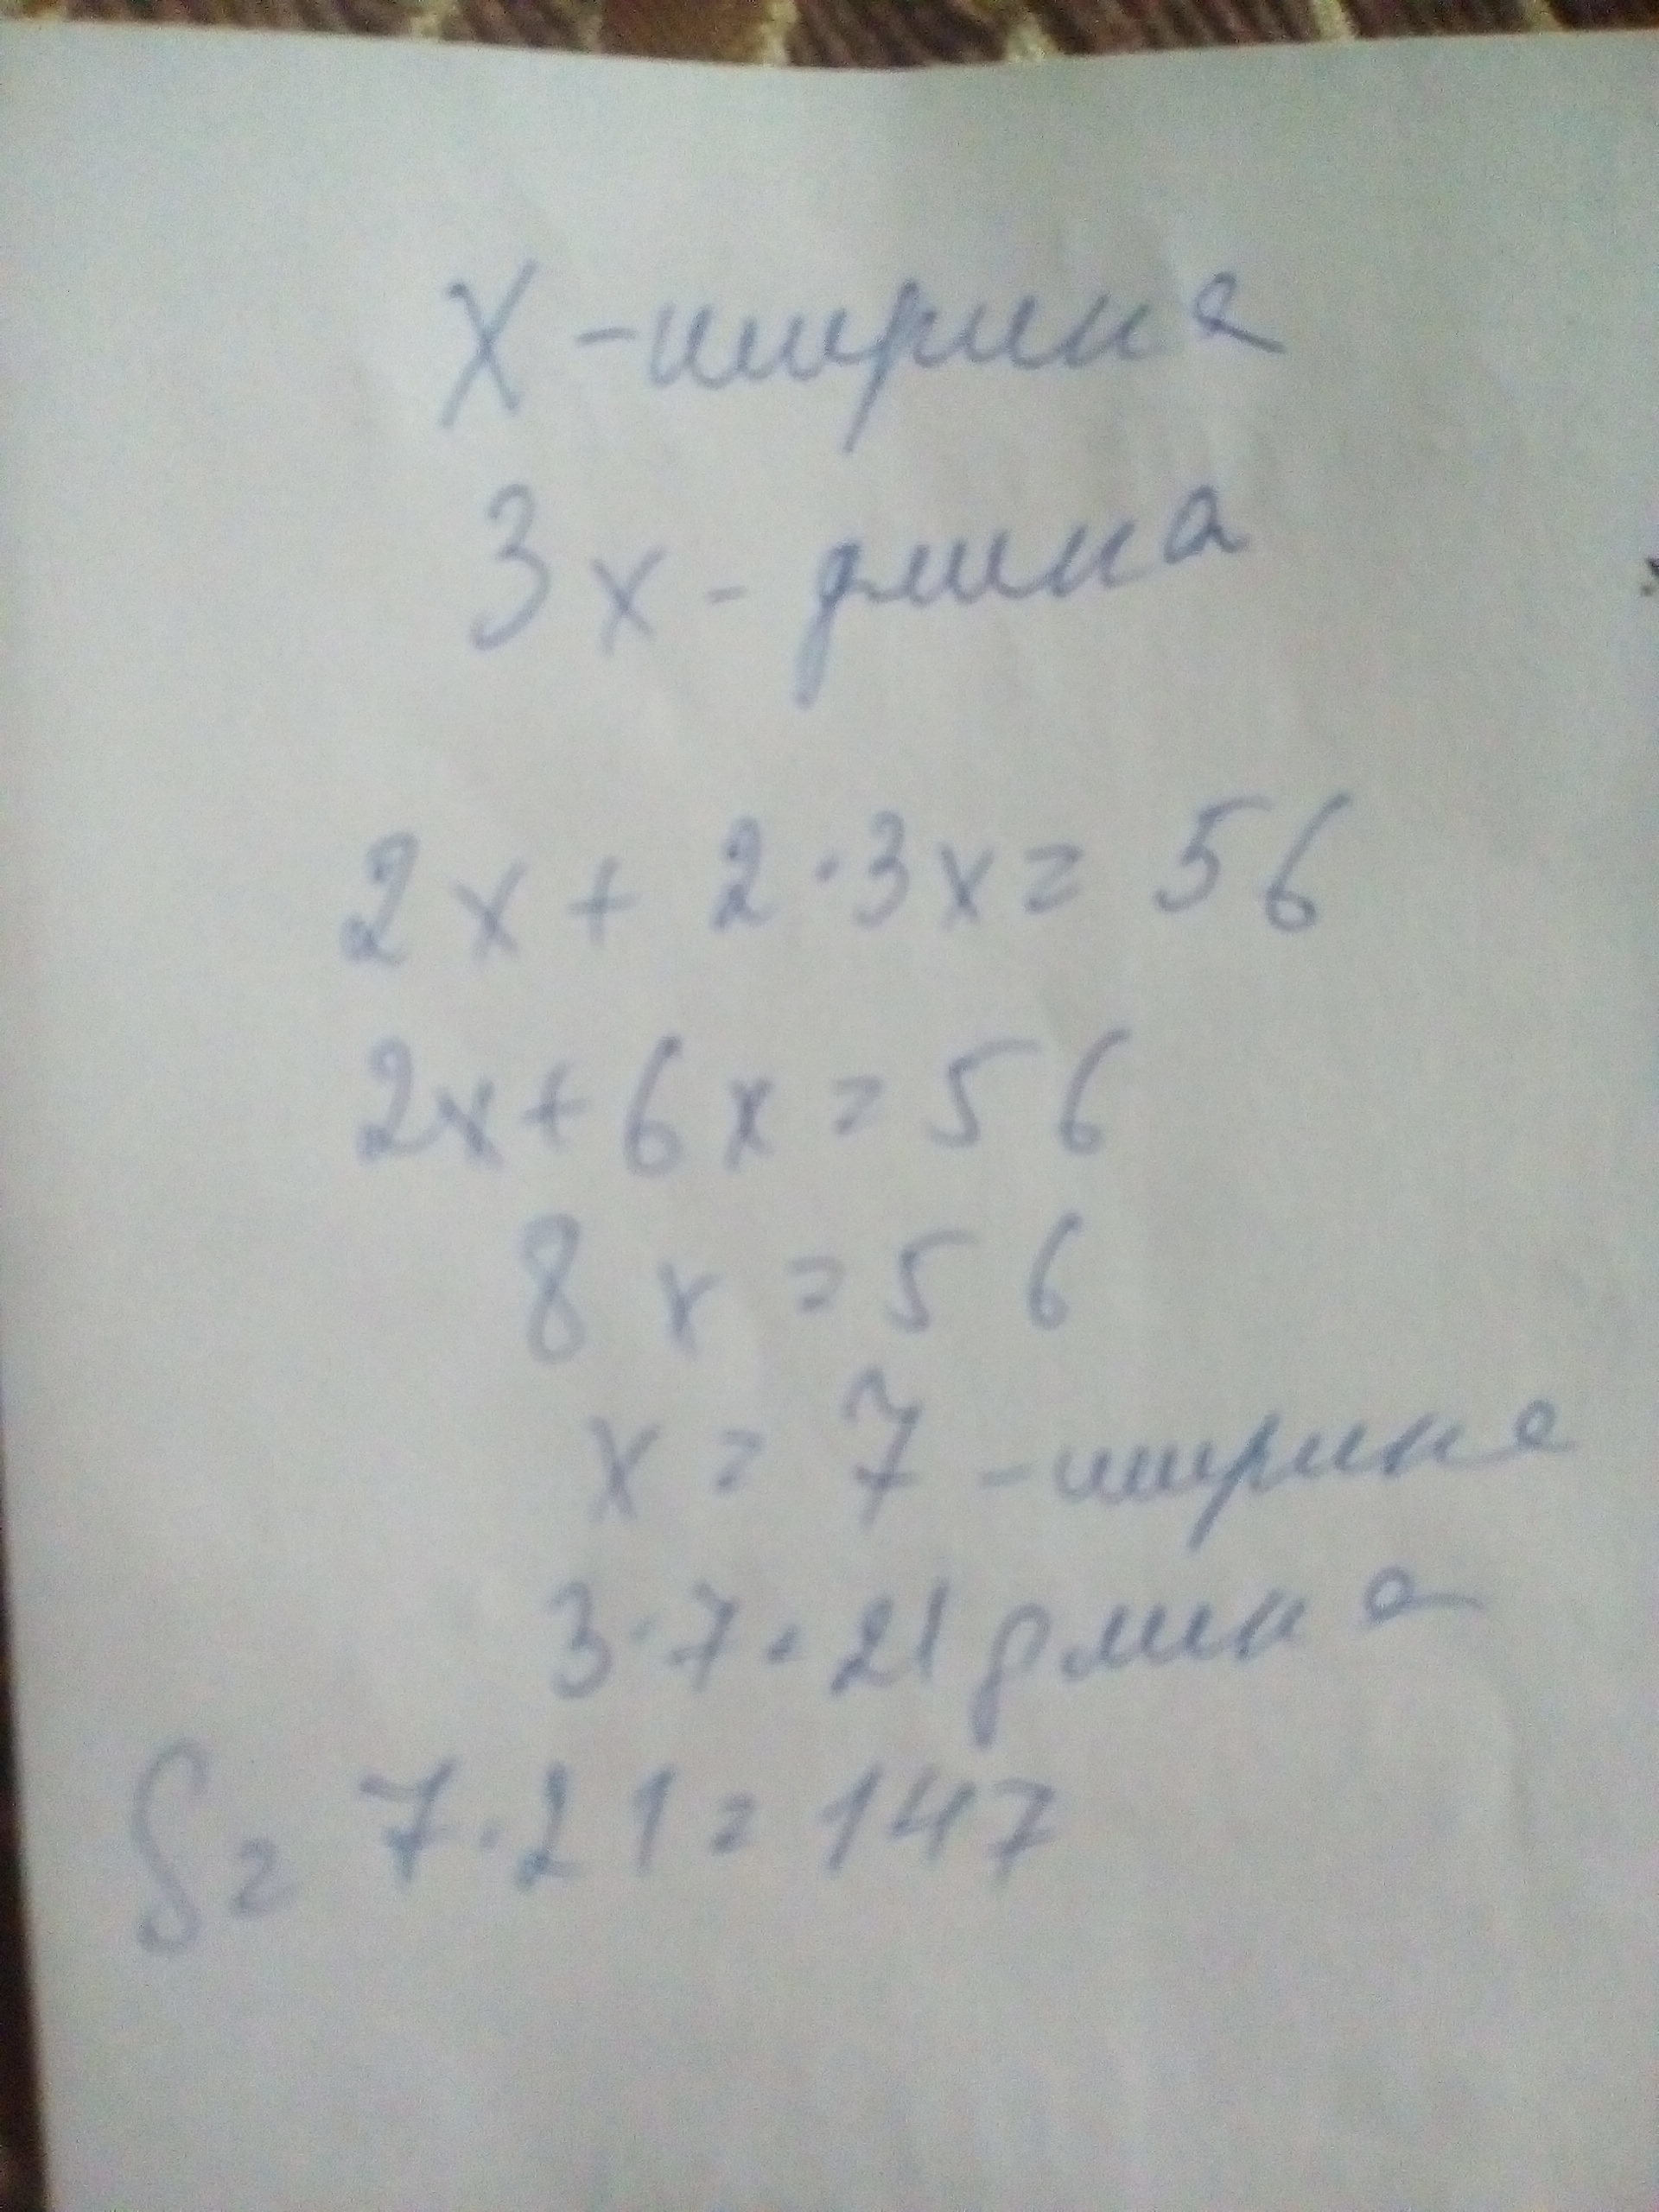 x - ширина
3x - длина
2x + 2·3x = 56
2x + 6x = 56
8x = 56
x = 7 - ширина
3·7 = 21 длина
S = 7·21 = 147